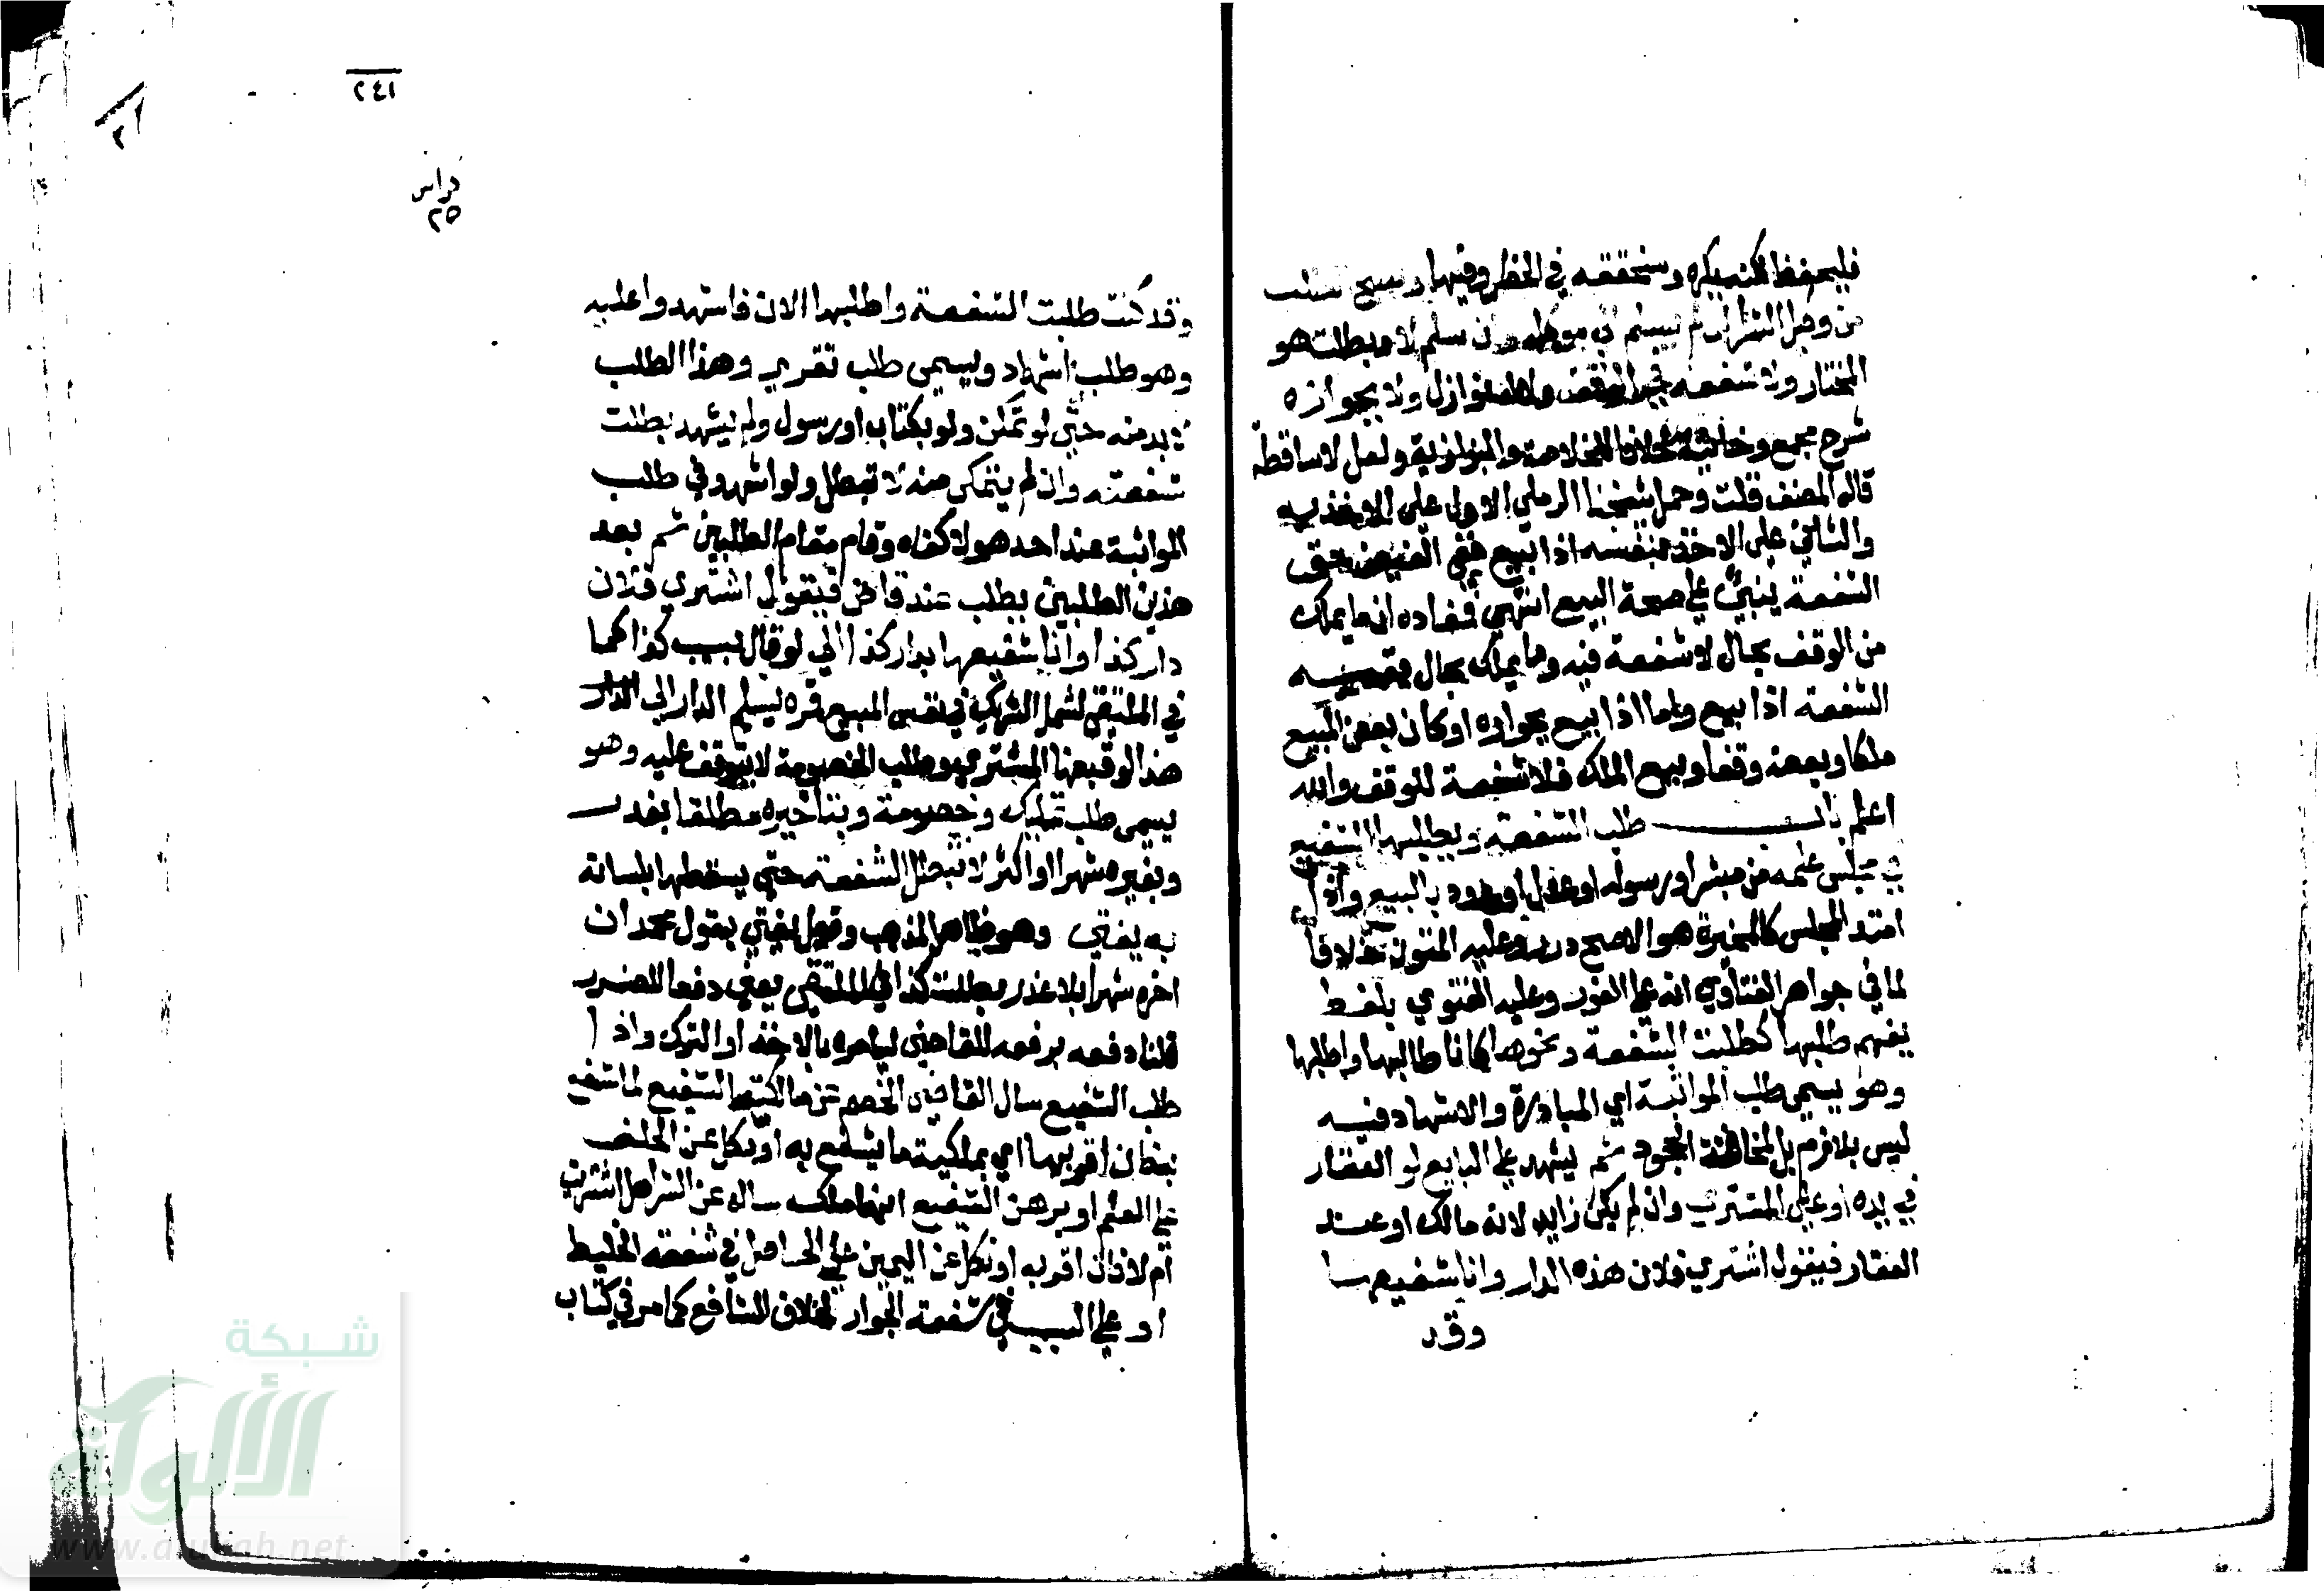 فليحفظ لكنه يكره وسنحققه في الحظر وفيها ويصح الطلب
من وكيل الشرا ان لم يسلم الى موكله وان سلم لا وبطلت هو
المختار ولا شفعة في الوقف ولا له نوازل ولا بجواره
شرح مجمع وخانية خلافا للخلاصة والبزازية ولعل لا ساقطة
قاله المصنف قلت وحمل شيخنا الرملي الاول على الاخذ به
والثاني على الاخذ بنفسه اذا بيع ففي الفيض حق
الشفعة ينبني على صحة البيع انتهى فمفاده ان ما يملك
من الوقف بحال لا شفعة فيه وما يملك بحال ففيه
الشفعة اذا بيع واما اذا بيع بجواره او كان بعض المبيع
ملكا وبعضه وقفا وبيع الملك فلا شفعة للوقف والله
اعلم باب طلب الشفعة ويطلبها الشفيع
في مجلس علمه من مشتر او رسوله او عدل او عدد بالبيع وان
امتد المجلس كالمخيرة هو الاصح درر وعليه المتون خلافا
لما في جواهر الفتاوي انه على الفور وعليه الفتوي بلفظ
يفهم طلبها كطلبت الشفعة ونحوه كانا طالبها واطلبها
وهو يسمى طلب المواثبة اي المبادرة والاشهاد فيه
ليس بلازم بل لمخافة الجحود ثم يشهد على البايع لو العقار
في يده او على المشتري وان لم يكن زايد لانه مالك او عند
العقار فيقول اشترى فلان هذه الدار وانا شفيعها
وقد
٢٤١
كراس
٢٥
وقد كنت طلبت الشفعة واطلبها الان فاشهدوا عليه
وهو طلب اشهاد ويسمى طلب تقرير وهذا الطلب
لا بد منه حتى لو تمكن ولو بكتاب او رسول ولم يشهد بطلت
شفعته وان لم يتمكن منه لا تبطل ولو اشهد في طلب
المواثبة عند احد هولا كفاه وقام مقام الطلبين ثم بعد
هذين الطلبين يطلب عند قاض فيقول اشتري فلان
دار كذا وانا شفيعها بدار كذا الي لو قال بسبب كذا كما
في الملتقى لشمل الشريك في نفس المبيع فمره يسلم الدار الى الدار
هذا لو قبضها المشتري وطلب الخصومة لا يتوقف عليه وهو
يسمى طلب تمليك وخصومة وبتاخيره مطلقا بعذر
وبغيره شهرا او اكثر لا تبطل الشفعة حتى يسقطها بلسانه
به يفتي وهو ظاهر المذهب وقيل يفتي بقول محمد ان
اخره شهرا بلا عذر بطلت كذا في الملتقى يعني دفعا للضرر
قلنا دفعه برفعه للقاضي ليامره بالاخذ او الترك واذا
طلب الشفيع سال القاضي الخصم عن مالكية الشفيع لما شفع
به فان اقر بها اي بملكية ما يشفع به او نكل عن الحلف
على العلم او برهن الشفيع انها ملكه ساله عن الشرا هل اشتريت
ام لا فان اقر به او نكل عن اليمين على الحاصل في شفعة الخليط
او على السبب في شفعة الجوار لخلاف الشافعي كما مر في كتاب
شبكة
الألوكة
www.alukah.net